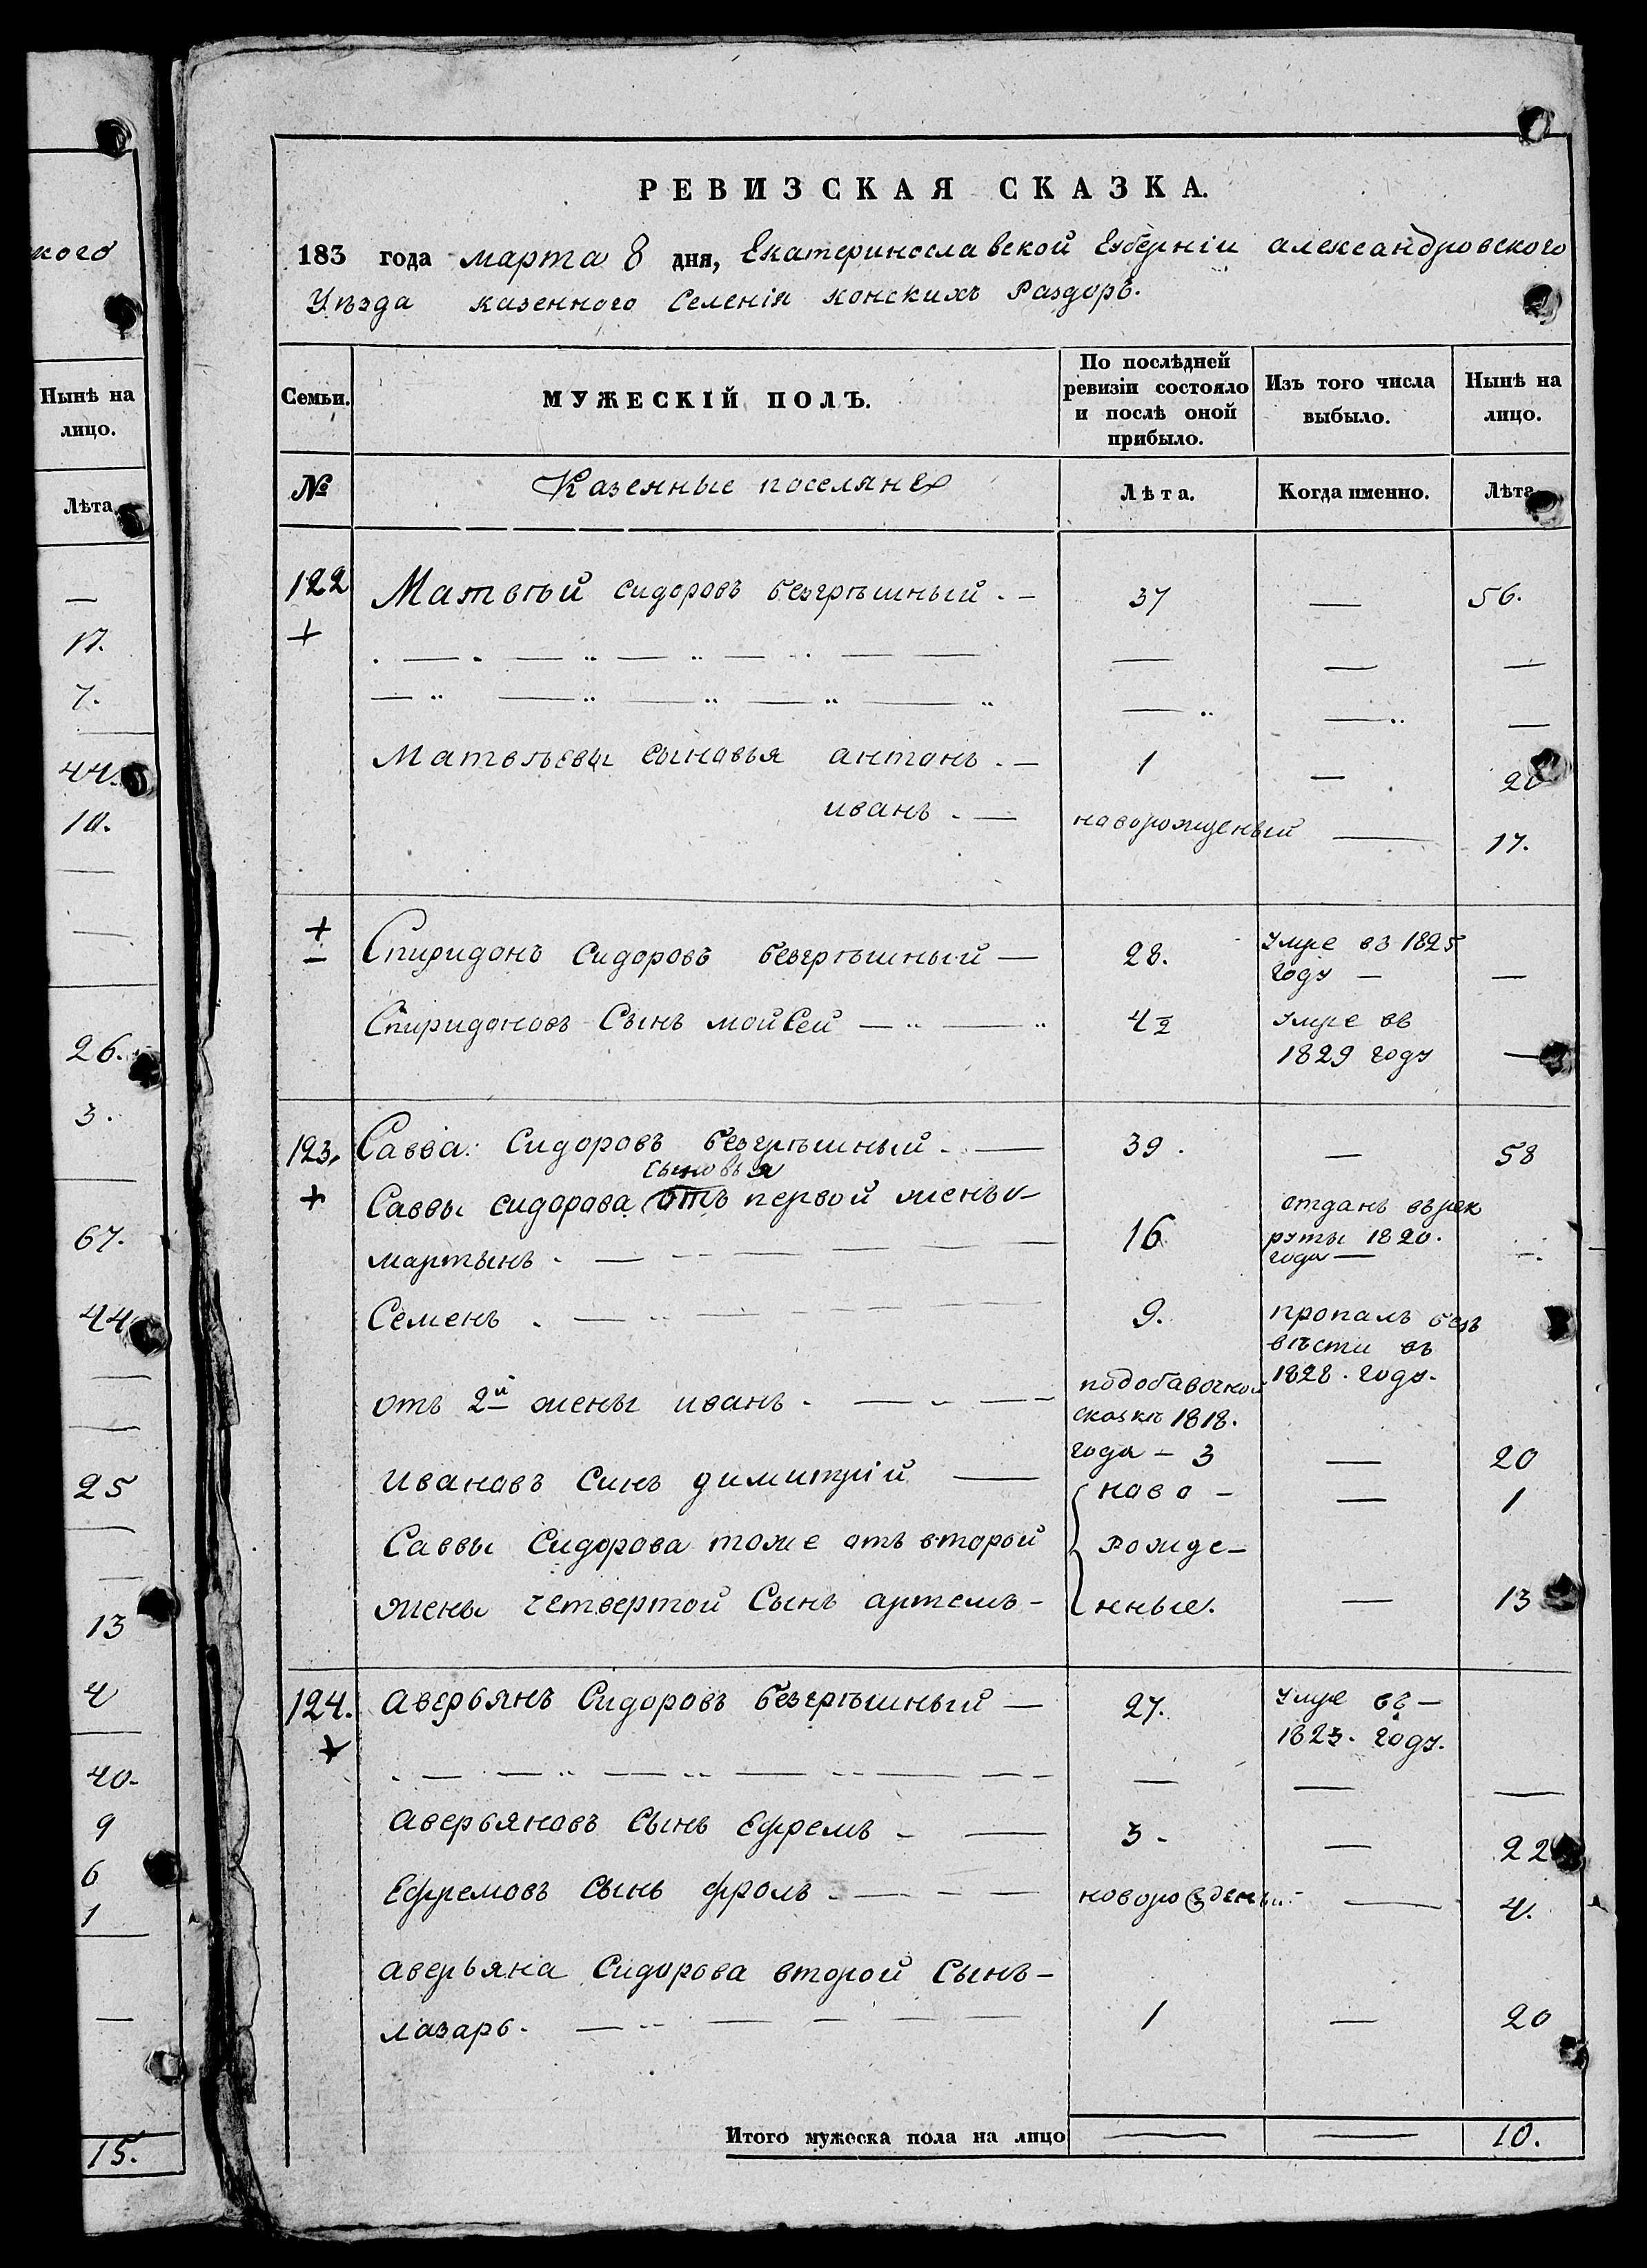 кого
Нынѣ на
лицо.
Лѣта
17.
7.
44.
10.
26.
3.
67.
44
25
13
4
40.
9
6
1
15.
РЕВИЗСКАЯ СКАЗКА.
183 года марта 8 дня, Екатеринославской Губерніи александровского
Уѣзда казенного Селенія конскихъ Раздоръ.
Семьи. МУЖЕСКІЙ ПОЛЪ. По послѣдней ревизіи состояло и послѣ оной прибыло. Изъ того числа выбыло. Нынѣ на лицо.
№ Казенные поселяне Лѣта. Когда именно. Лѣта
122 Матвѣй сидоровъ безгрѣшный 37 — 56.
+
Матвѣевы сыновья антонъ 1 — 20
иванъ новорожденый — 17.
+ Спиридонъ Сидоровъ безгрѣшный 28. умре въ 1825 году —
Спиридоновъ Сынъ мойсей 4½ умре въ 1829 году —
123. Савва: Сидоровъ безгрѣшный 39. — 58
+ Саввы сидорова сыновья отъ первой жены
мартынъ 16 отданъ въ рекруты 1820. года
Семенъ 9. пропалъ безъ вѣсти въ 1828. году.
отъ 2й жены иванъ подобавочной сказкѣ 1818. года — 3 — 20
ивановъ Синъ димитрій ново- — 1
Саввы Сидорова тоже отъ второй рожде-
жены четвертой Сынъ артемъ нные. — 13
124. аверьянъ Сидоровъ безгрѣшный 27. умре въ 1823. году.
+
аверьяновъ Сынъ Ефремъ 3 — 22
Ефремовъ Сынъ фролъ новорозденый — 4.
аверьяна Сидорова второй Сынъ
лазарь. 1 — 20
Итого мужеска пола на лицо — — 10.